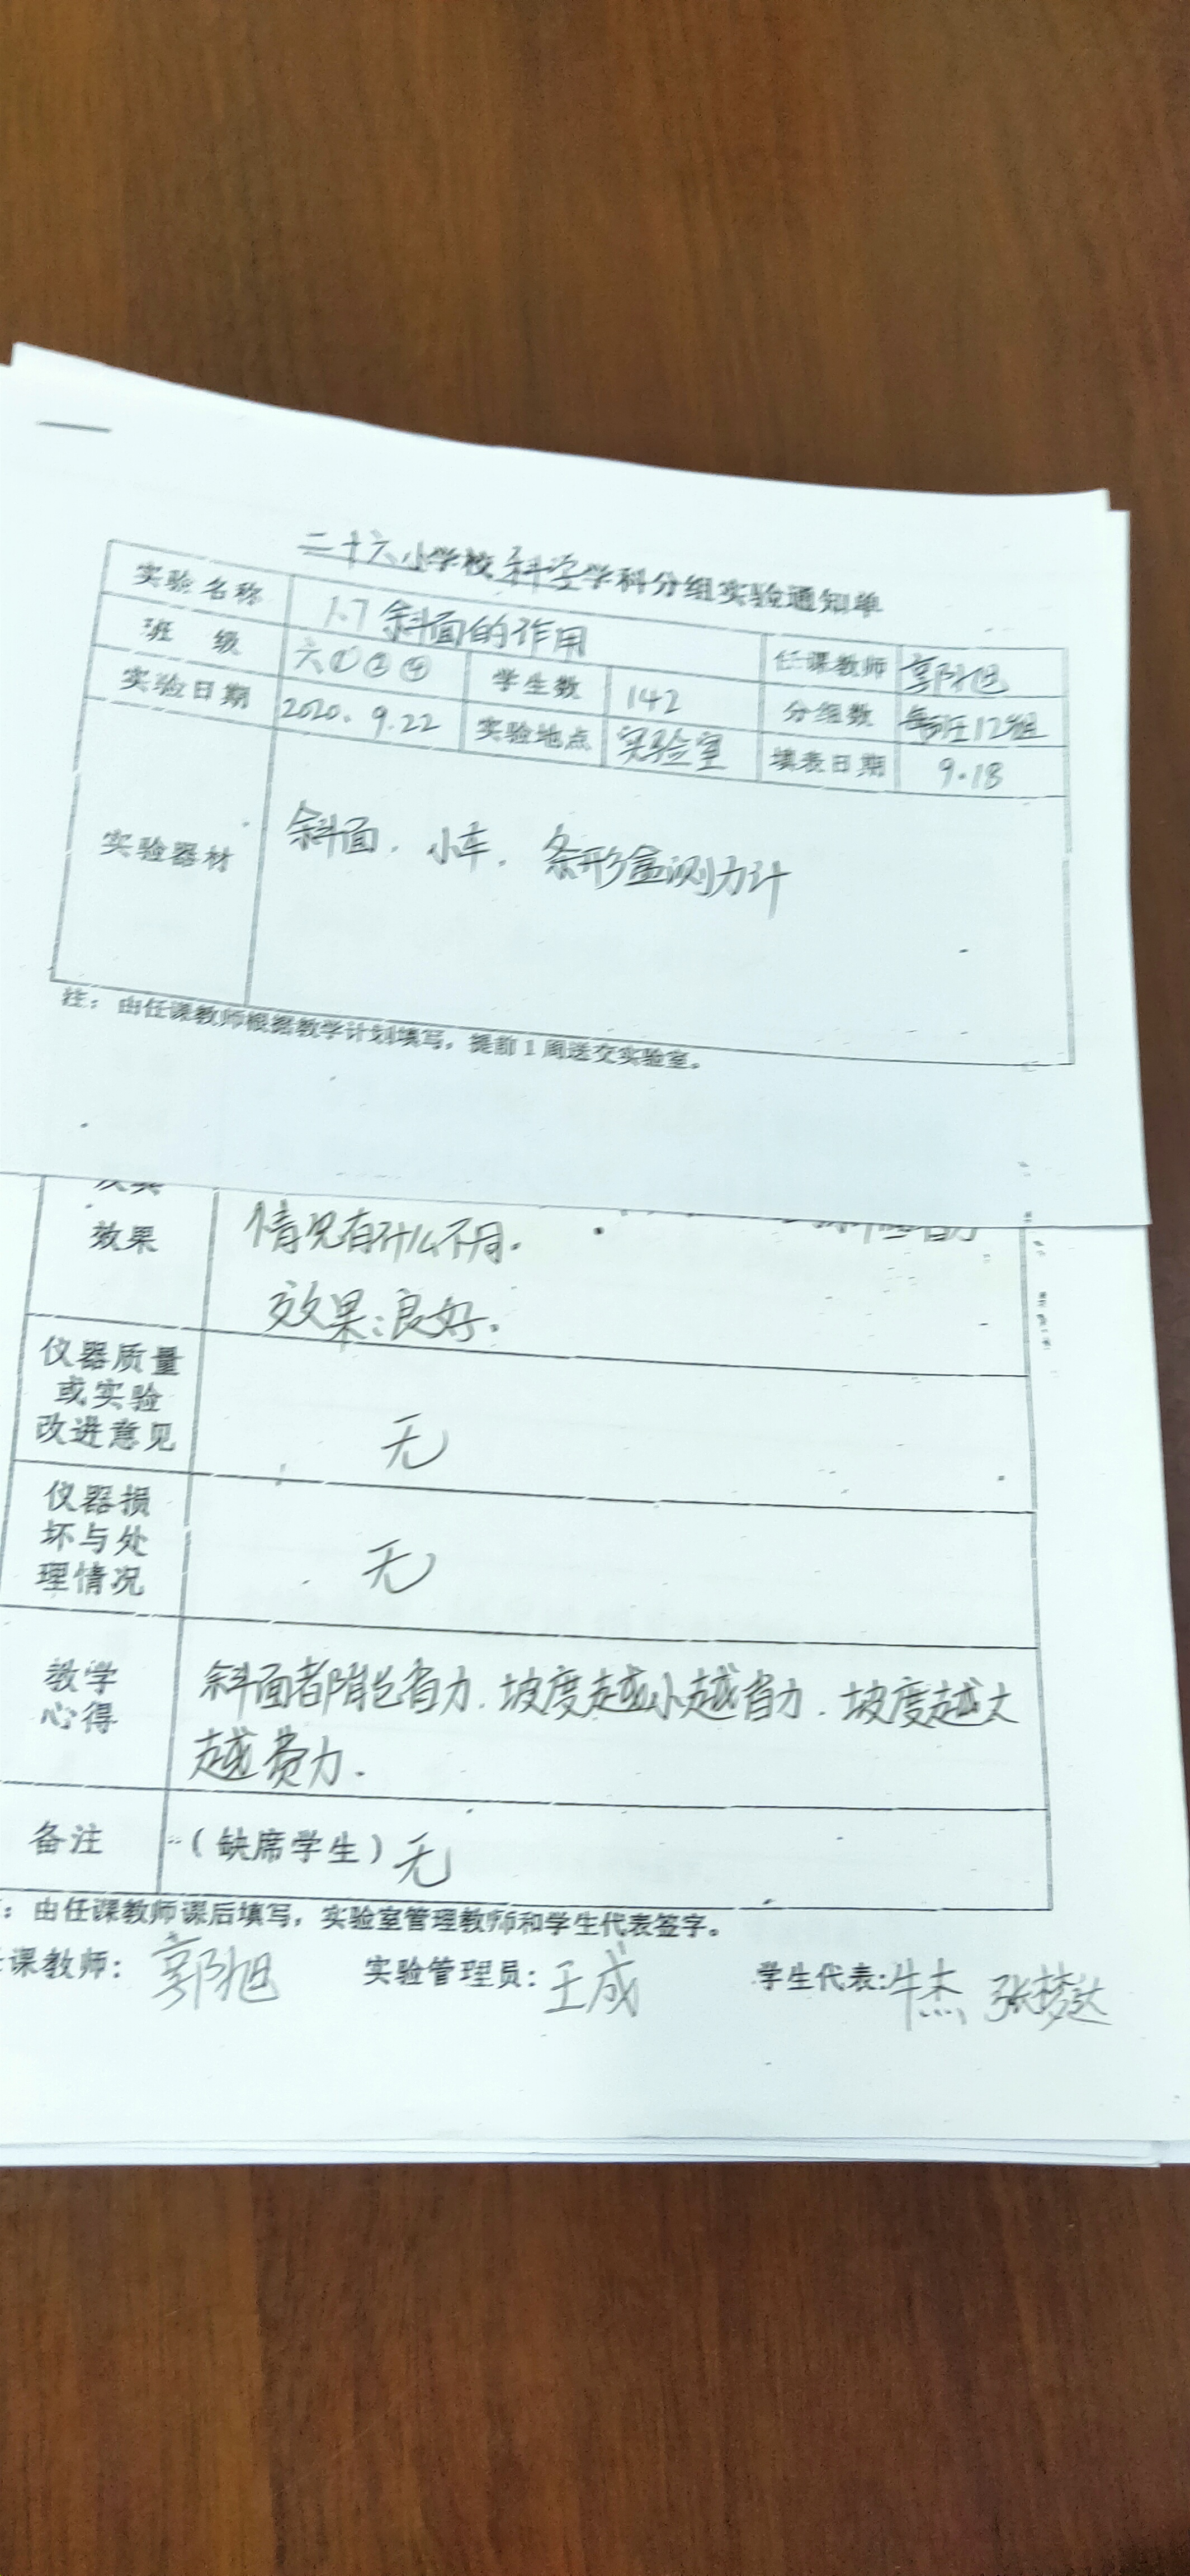 二十六小学校科学学科分组实验通知单
实验名称 1.7 斜面的作用 任课教师 郭旭
班 级 六①②④ 学生数 142 分组数 每班12组
实验日期 2020.9.22 实验地点 实验室 填表日期 9.18
实验器材 斜面. 小车. 条形盒测力计
注：由任课教师根据教学计划填写，提前1周送交实验室。
效果 情况有什么不同.
效果:良好.
仪器质量
或实验
改进意见
无
仪器损
坏与处
理情况
无
教学
心得
斜面都能省力.坡度越小越省力.坡度越大
越费力.
备注 （缺席学生）无
：由任课教师课后填写，实验室管理教师和学生代表签字。
课教师：郭旭 实验管理员：王成 学生代表:牛杰 张梦达